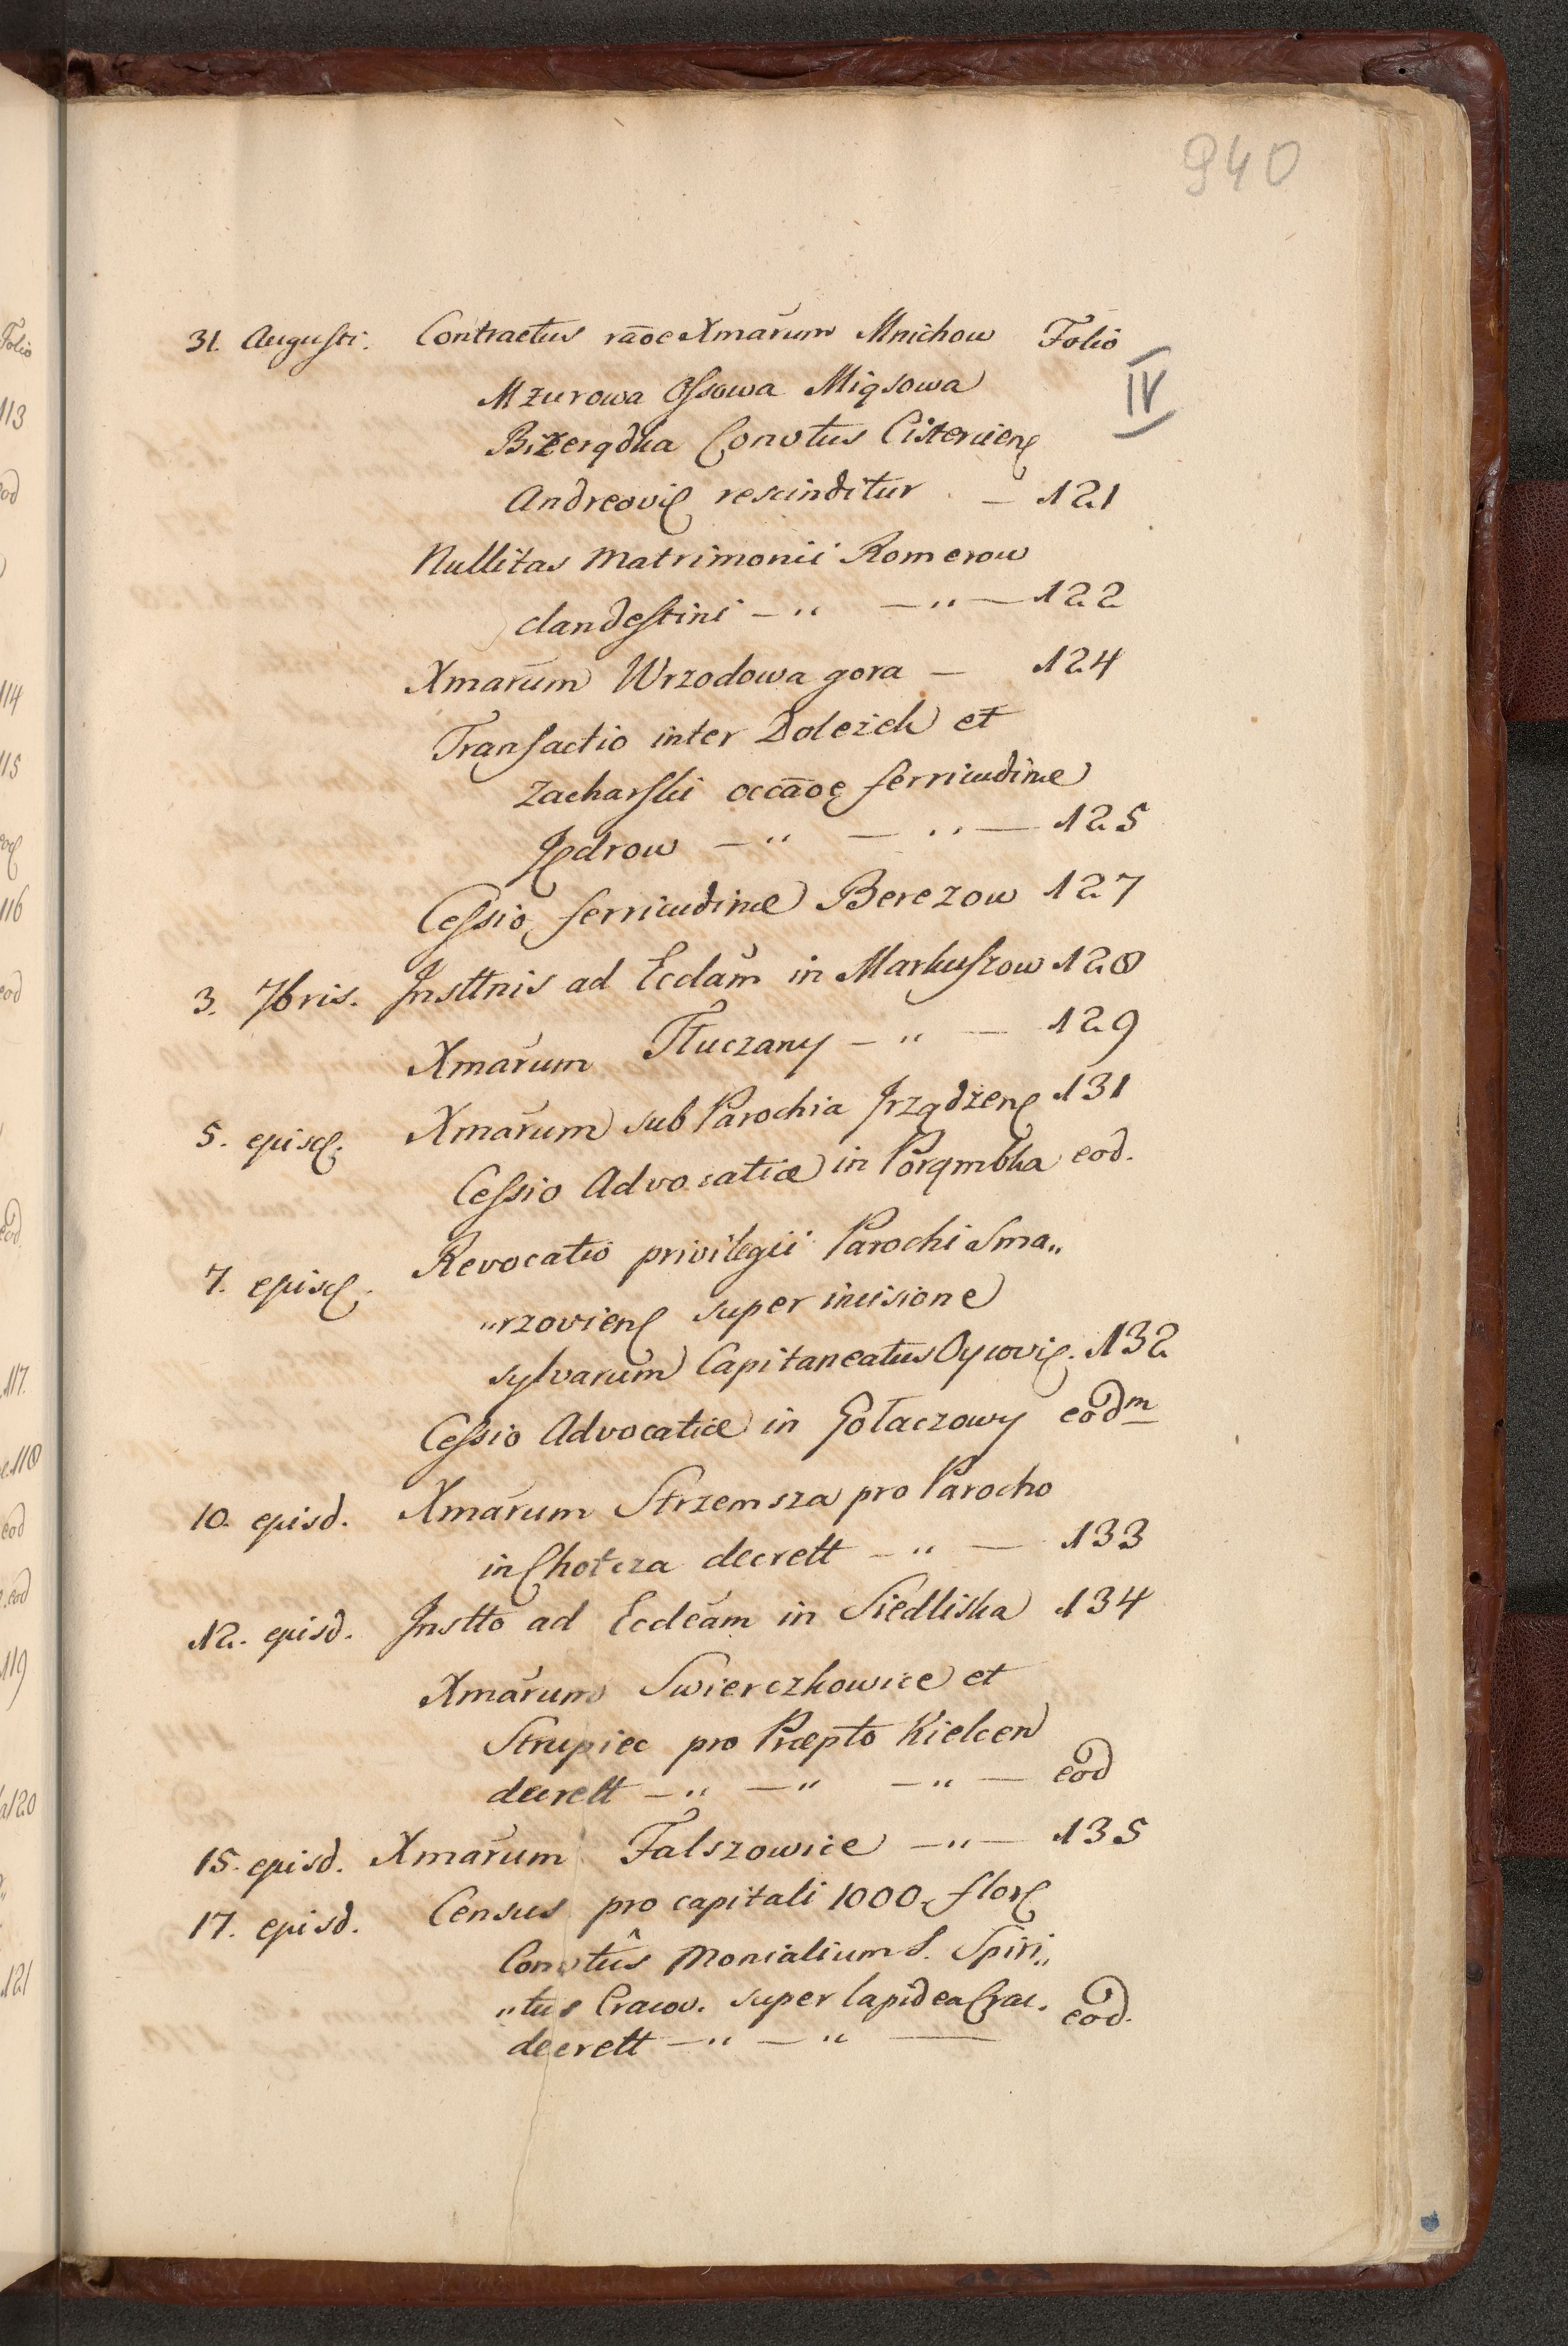 940
31. Augusti. Contractus rāoe Xmarum Mnichow Folio
IV
Mzurowa Ossowa Miąsowa
Bizerądka Convtus Cisterciens
Andreovis rescinditur . — 121
Nullitas Matrimonii Romerow
clandestini — " — " — 122
Xmarum Wrzodowa gora — 124
Transactio inter Doleżek et
Zacharski occāoe ferricudinæ
Jędrow — " — " — 125
Cessio ferricudinæ Berezow 127
3. 7bris. Insttnis ad Ecclam in Markuszow 128
Xmarum Tłuczany — " — 129
5. ejusd. Xmarum sub Parochia Irządzens 131
Cessio Advocatiæ in Porąmbka eod.
7. ejusd. Revocatio privilegii Parochi Sma„
„rzoviens super incisione
sylvarum Capitaneatus Oycovis. 132
Cessio Advocatiæ in Gołaczowy eodm
10. ejusd. Xmarum Strzemsza pro Parocho
in Chotcza decrett — " — 133
12. ejusd. Instto ad Eccleam in Siedliska 134
Xmarum Swierczkowice et
Strupiec pro Præpto Kielcen
decrett — " — " — " — eod
15. ejusd. Xmarum Falszowice — " — 135
17. ejusd. Census pro capitali 1000 flor
Convtûs Monialium S. Spiri„
„tus Cracov. super lapidea Crac. eod.
decrett — " — " —